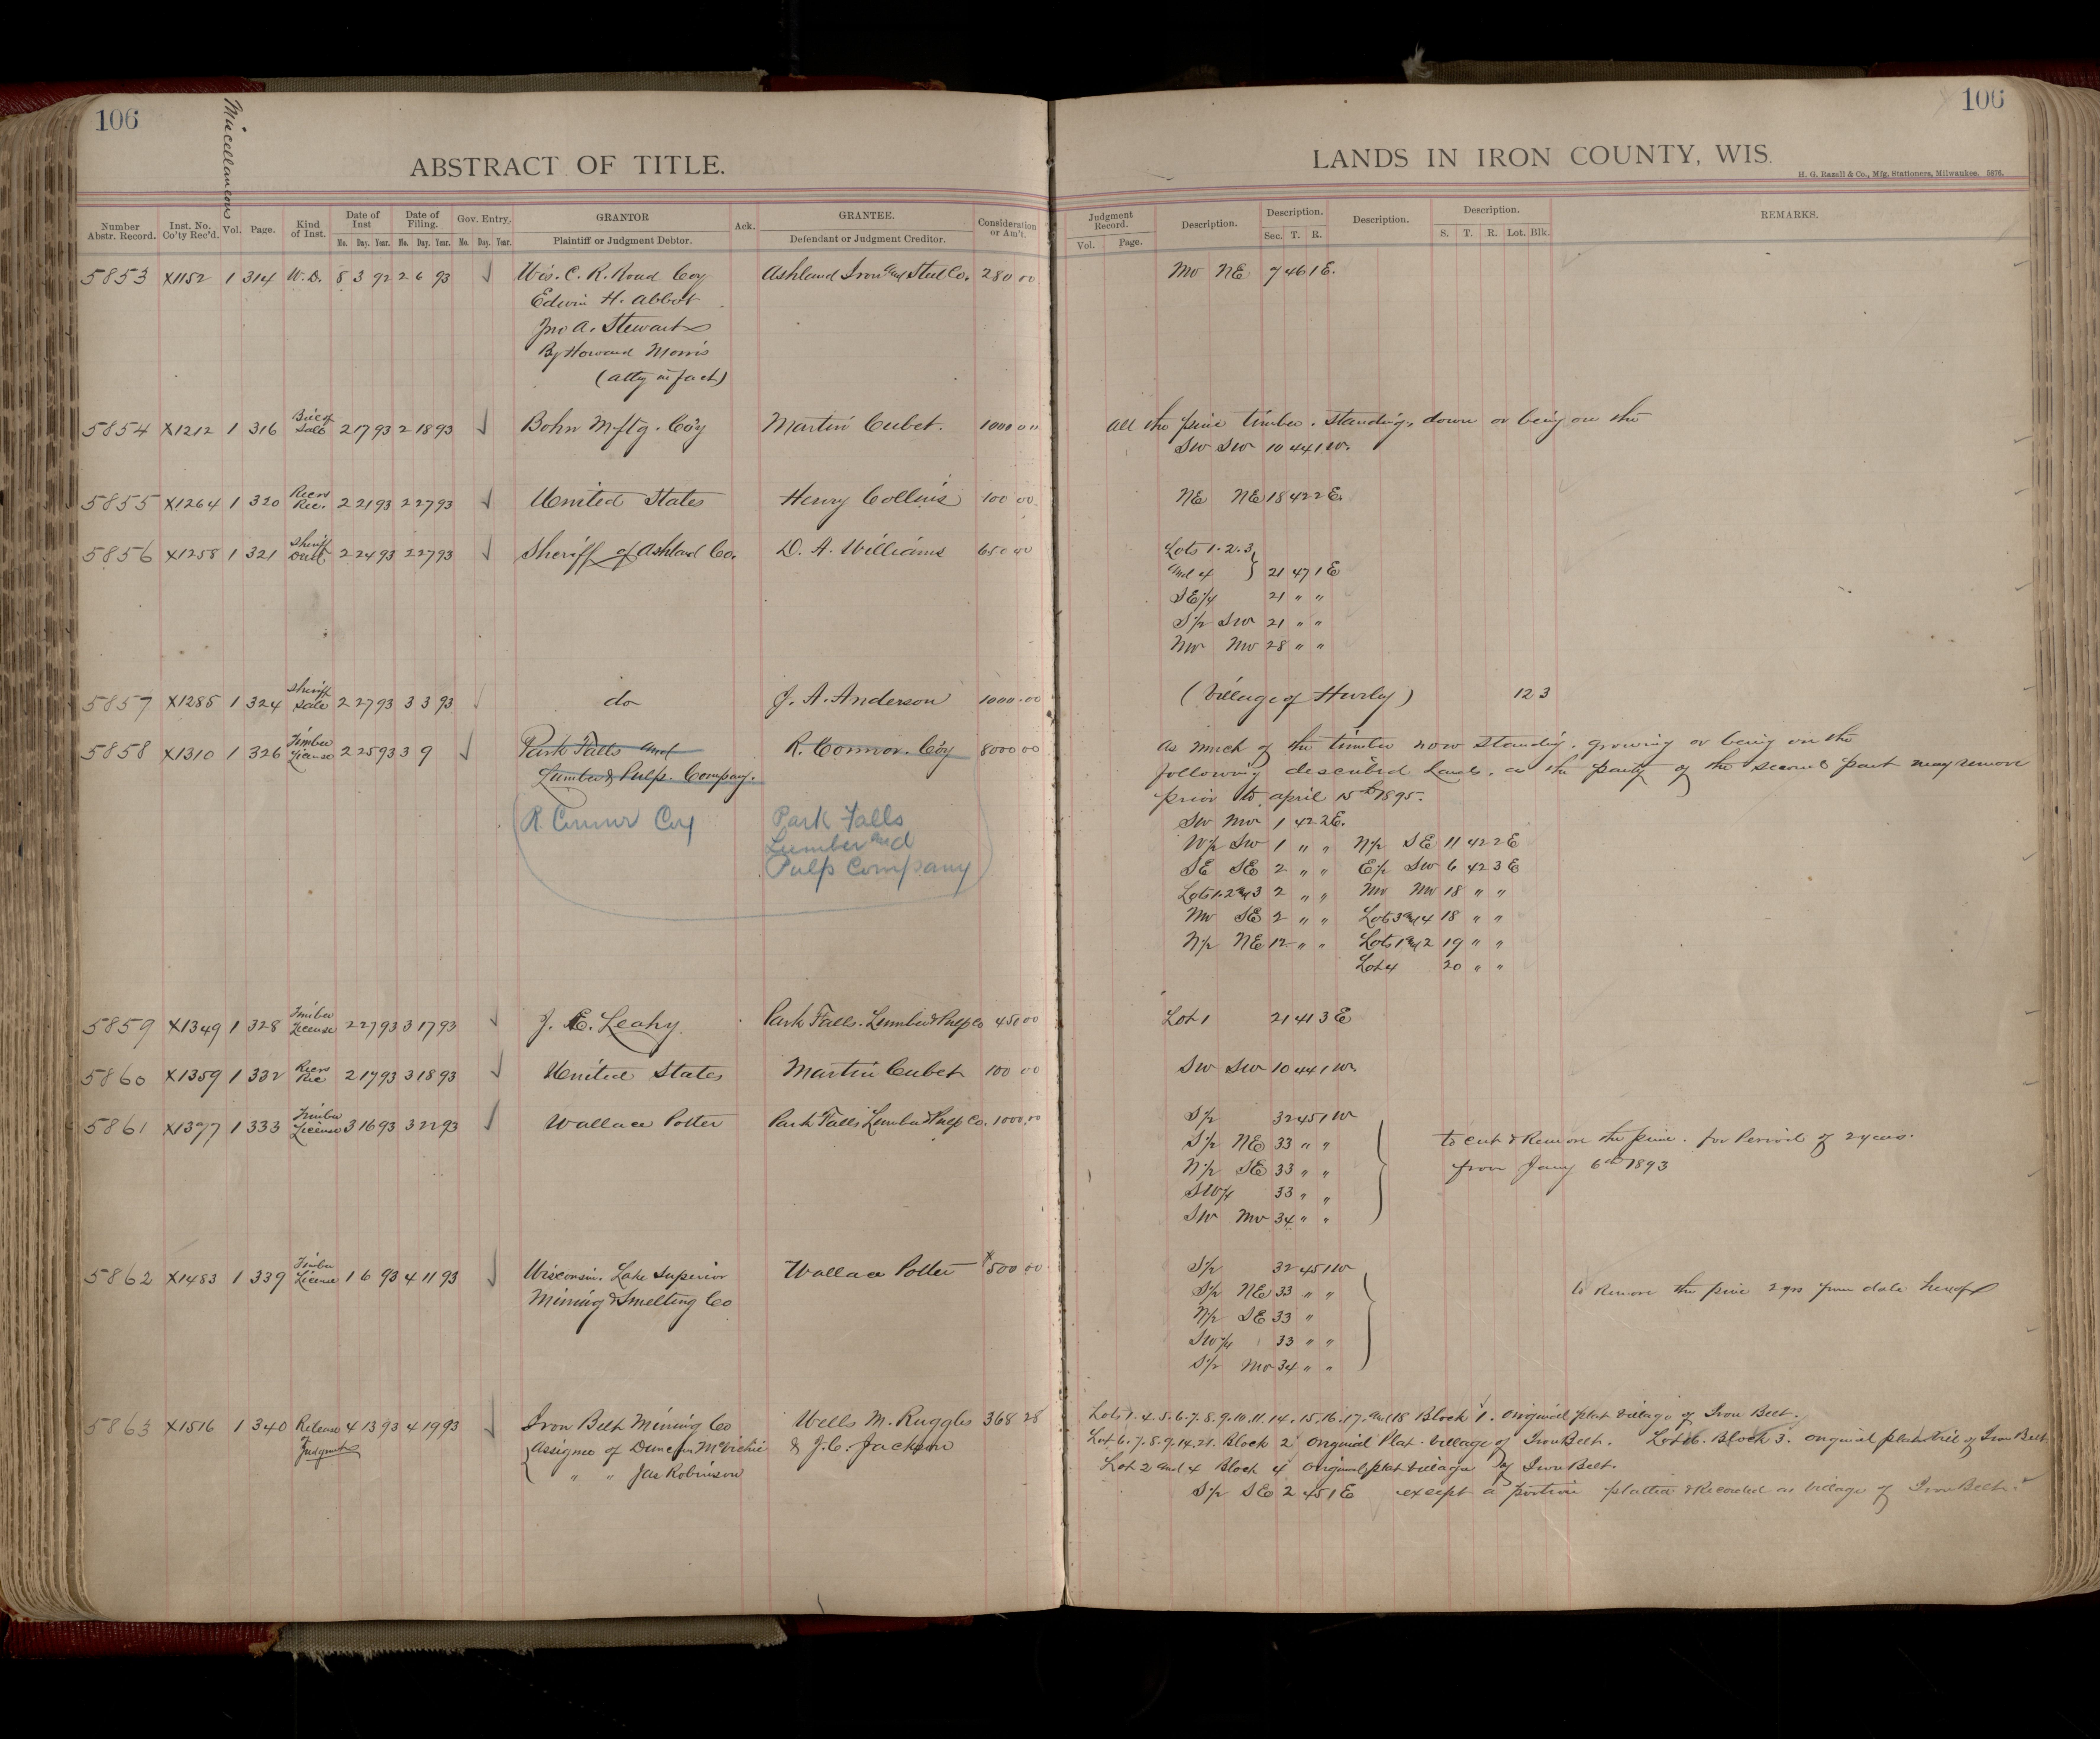 106
Miscellaneous
ABSTRACT OF TITLE.
Number Abstr. Record. Inst. No. Co'ty Rec'd. Vol. Page. Kind of Inst. Date of Inst Mo. Day. Year. Date of Filing. Mo. Day. Year. Gov. Entry. Mo. Day. Year. GRANTOR Plaintiff or Judgment Debtor. Ack. GRANTEE. Defendant or Judgment Creditor. Consideration or Am't.
5853 X1152 1 314 W.D. 8 3 92 2 6 93 Wis. C. R. Road Coy Ashland Iron and Steel Co. 280 00
Edwin H. Abbot
Jno A. Stewart
By Howard Morris
(atty in fact)
5854 X1212 1 316 Bill of Sale 2 17 93 2 18 93 Bohn Mftg. Coy Martin Cubet. 1000 00
5855 X1264 1 320 Recvs Rec. 2 21 93 2 27 93 United States Henry Collins 100 00
5856 X1258 1 321 Sheriff 2 24 93 2 27 93 Sheriff of Ashland Co. D. A. Williams 650 00
5857 X1285 1 324 Sheriff Sale 2 27 93 3 3 93 do J. A. Anderson 1000.00
5858 X1310 1 326 Timber License 2 25 93 3 9 Park Falls and R. Connor. Coy 8000 00
Lumber & Pulp. Company.
R. Connor Coy Park Falls
Lumber and
Pulp Company
5859 X1349 1 328 Timber License 2 27 93 3 17 93 J. E. Leahy Park Falls. Lumber & Pulp Co 450 00
5860 X1359 1 332 Recvs Rec 2 17 93 3 18 93 United States Martin Cubet 100 00
5861 X1377 1 333 Timber License 3 16 93 3 22 93 Wallace Potter Park Falls Lumber & Pulp Co. 1000.00
5862 X1483 1 339 Timber License 1 6 93 4 11 93 Wisconsin. Lake Superior Wallace Potter 500 00
Mining & Smelting Co
5863 X1516 1 340 Release of Judgment 4 13 93 4 19 93 Iron Belt Mining Co Wells M. Ruggles 368 28
Assignee of Duncan McVichie & J. C. Jackson
" " Jas Robinson
106
LANDS IN IRON COUNTY, WIS.
H. G. Razall & Co., Mfg. Stationers, Milwaukee. 5876.
Judgment Record. Vol. Page. Description. Description. Sec. T. R. Description. Description. S. T. R. Lot. Blk. REMARKS.
NW NE 7 46 1 E.
All the pine timber. standing, down or being on the
SW SW 10 44 1 W.
NE NE 18 42 2 E.
Lots 1.2.3
and 4 } 21 47 1 E
SE/4 21 " "
S/2 SW 21 " "
NW NW 28 " "
(Village of Hurley) 12 3
As much of the timber now standing. growing or being on the
following described lands. as the party of the second part may remove
prior to April 15th 1895.
SW NW 1 42 2 E.
W/2 SW 1 " " N/2 SE 11 42 2 E
SE SE 2 " " E/2 SW 6 42 3 E
Lots 1.2 and 3 2 " " NW NW 18 " "
NW SE 2 " " Lots 3 and 4 18 " "
N/2 NE 12 " " Lots 1 and 2 19 " "
Lot 4 20 " "
Lot 1 21 41 3 E
SW SW 10 44 1 W.
S/2 32 45 1 W
S/2 NE 33 " " to cut & Remove the pine. for Period of 2 years.
N/2 SE 33 " " from Jany 6th 1893
SW/4 33 " "
SW NW 34 " "
S/2 32 45 1 W
S/2 NE 33 " " to Remove the pine 2 yrs from date hereof
N/2 SE 33 "
SW/4 33 " "
S/2 NW 34 " "
Lots 1.4.5.6.7.8.9.10.11.14.15.16.17. and 18 Block 1. original plat Village of Iron Belt.
Lot 6.7.8.9.14.21. Block 2 Original Plat. Village of Iron Belt. Lot 6. Block 3. original plat Vill of Iron Belt
Lot 2 and 4 Block 4 original plat Village of Iron Belt.
S/2 SE 2 45 1 E except a portion platted & Recorded as Village of Iron Belt.